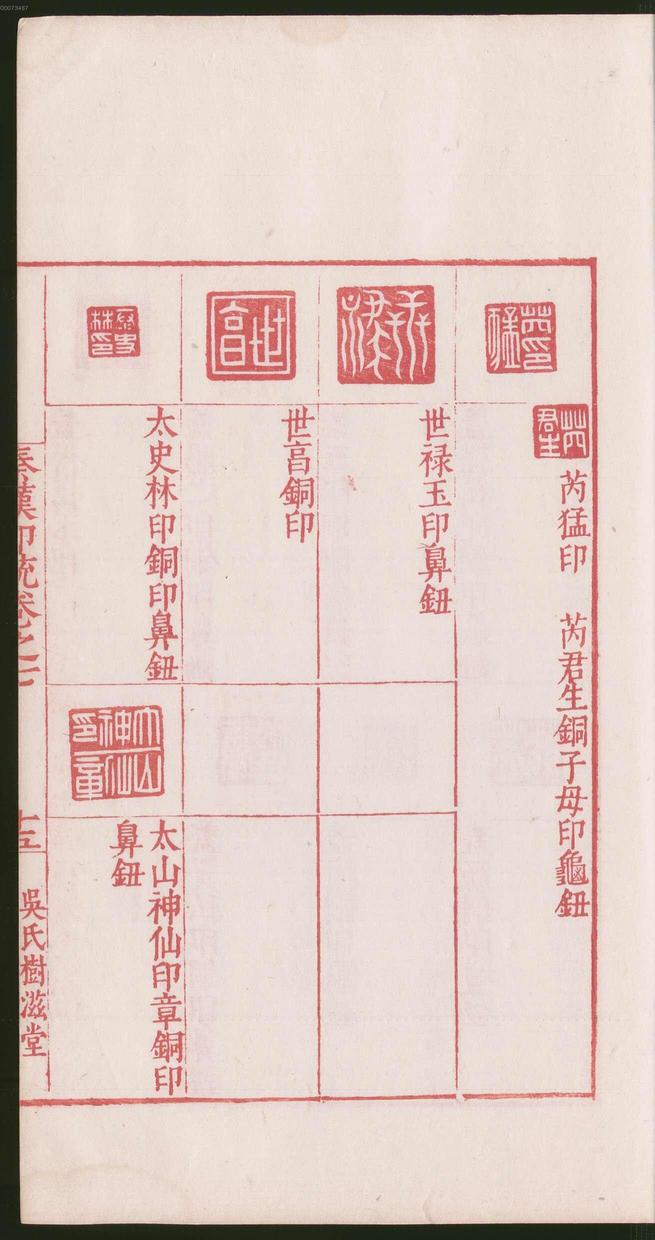 芮猛印　芮君生銅子母印龜鈕
世祿玉印鼻鈕
世㐭銅印
太史林印銅印鼻鈕
太山神仙印章銅印
鼻鈕
秦漢印統卷之七
十五
吳氏樹滋堂
00073467